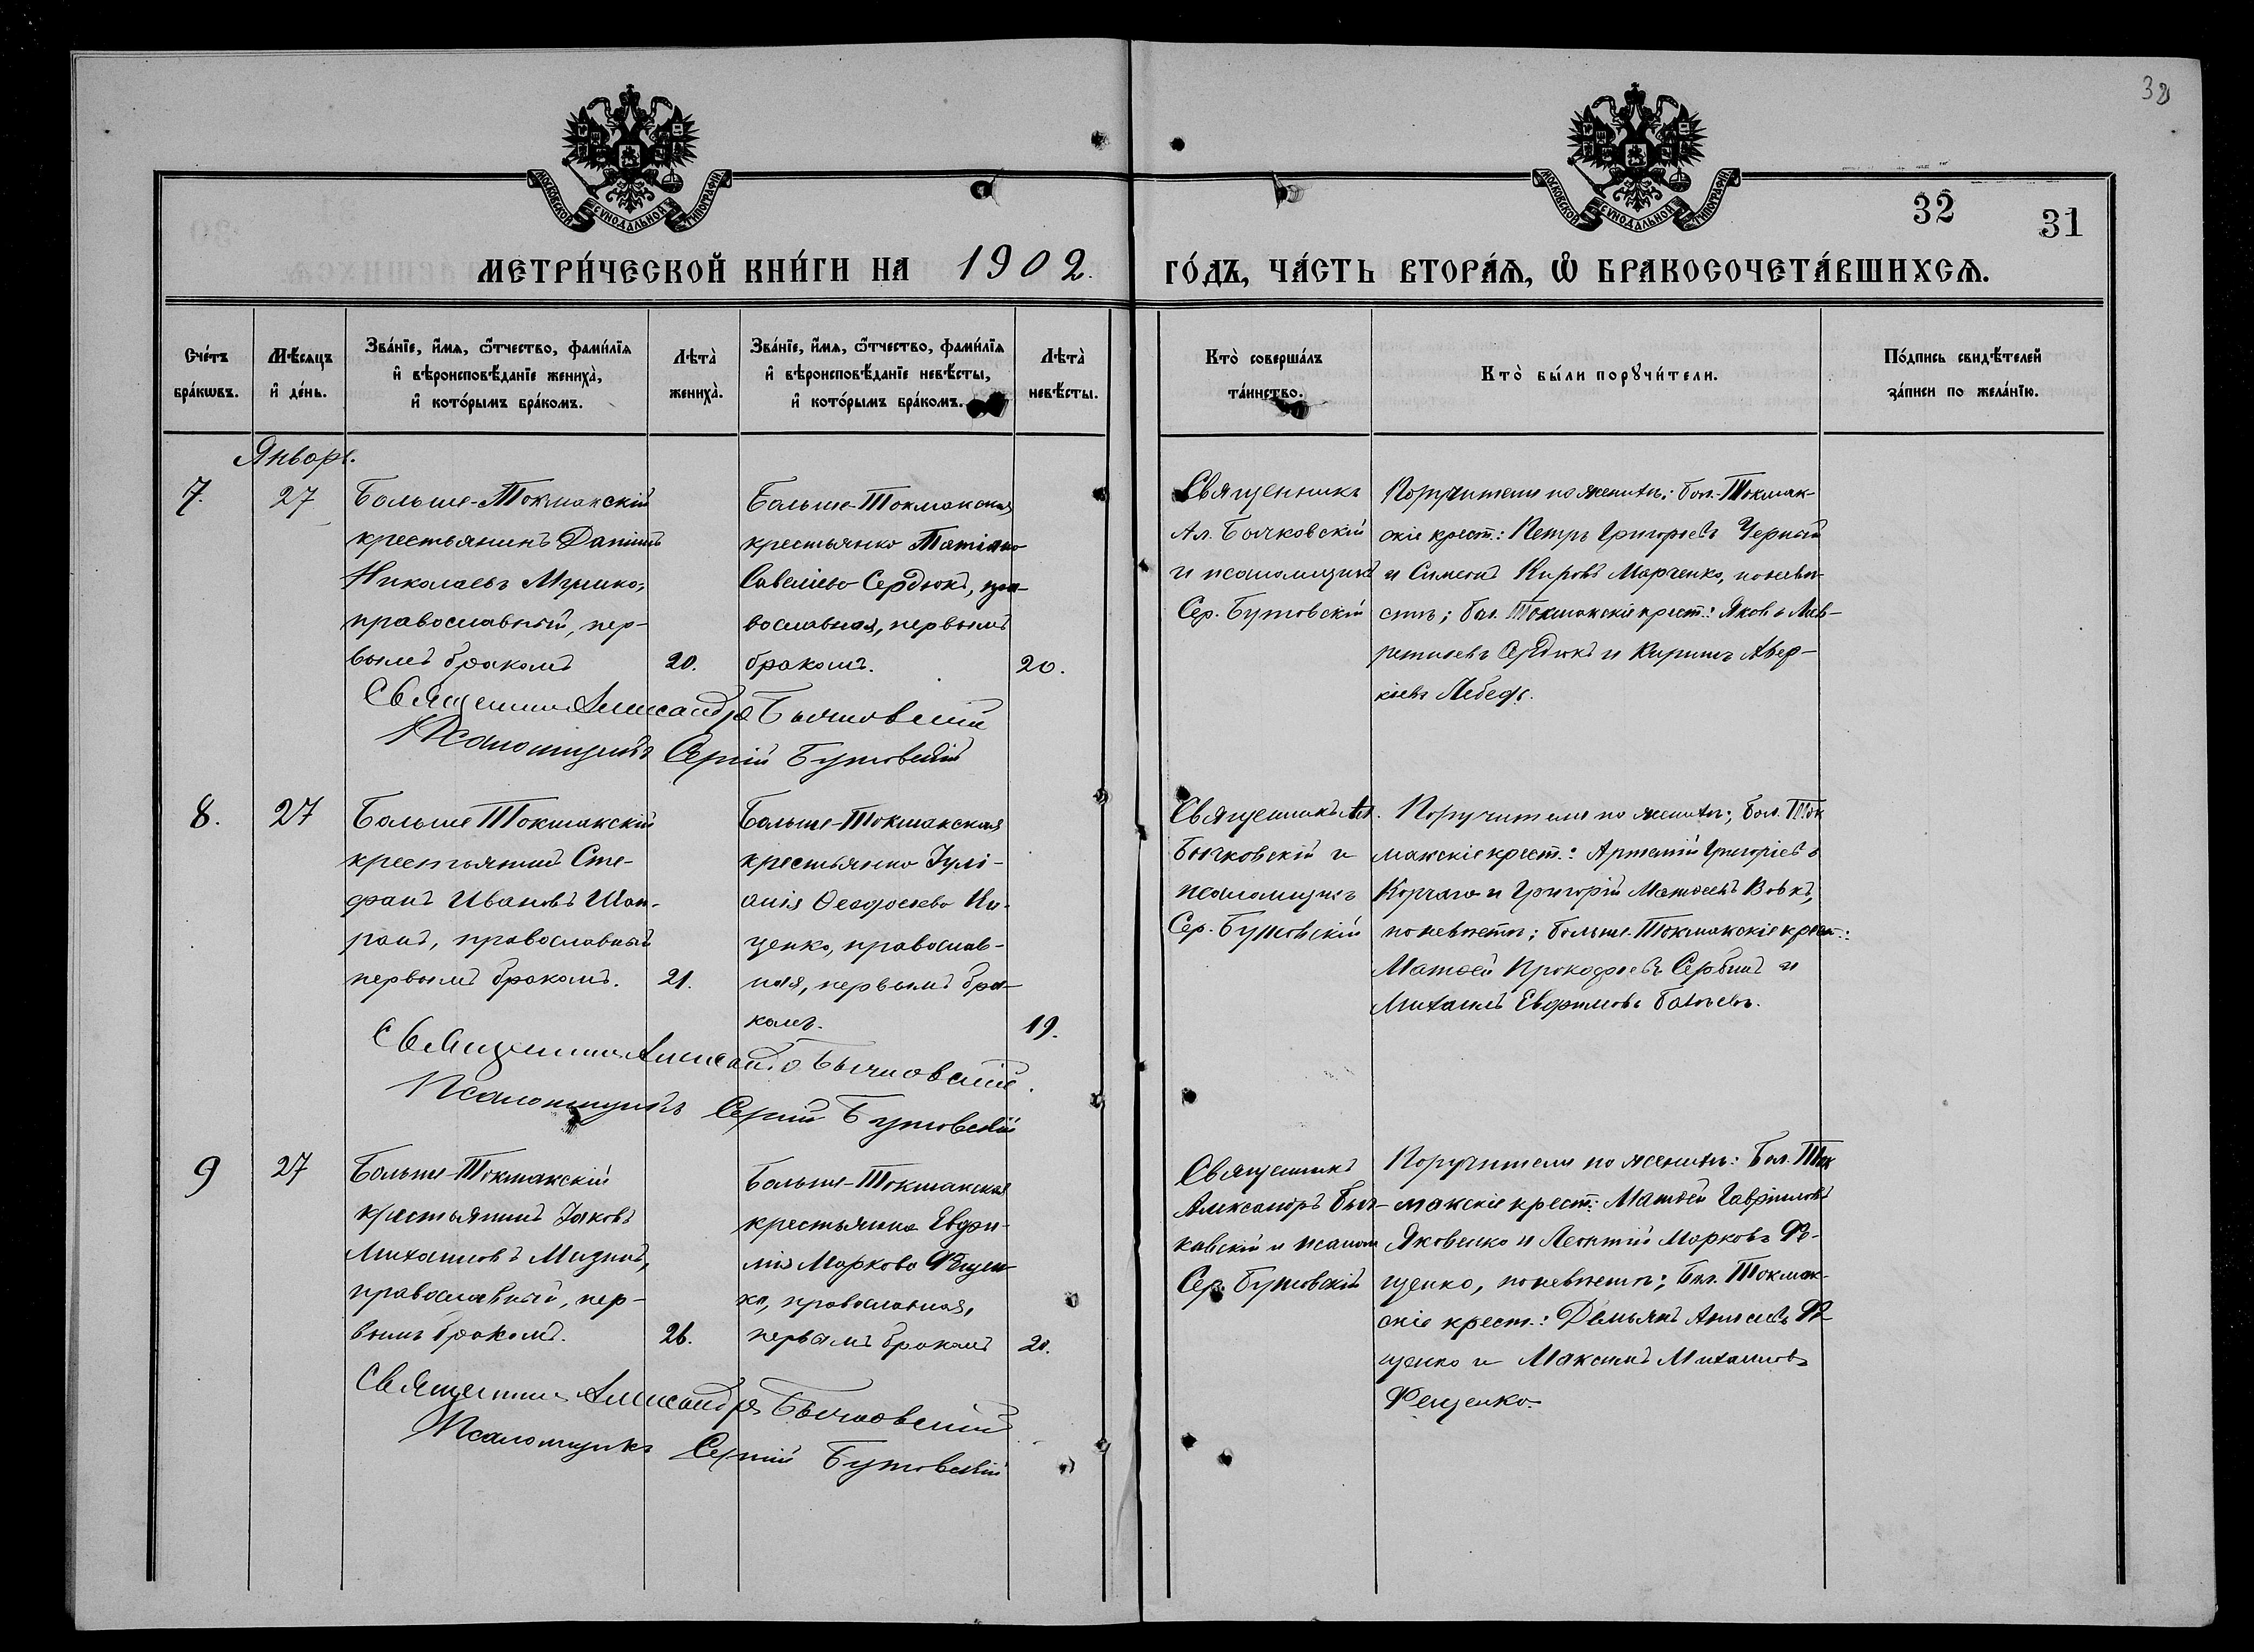 38
МОСКОВСКОЙ СѴНОДАЛЬНОЙ ТИПОГРАФІИ
МОСКОВСКОЙ СѴНОДАЛЬНОЙ ТИПОГРАФІИ
32 31
МЕТРИ́ЧЕСКОЙ КНИ́ГИ НА 1902. ГО́ДЪ, ЧА́СТЬ ВТОРА́Ѧ, Ѡ҆ БРАКОСОЧЕТА́ВШИХСѦ.
Сче́тъ
бра́кѡвъ.
Мѣ́сѧцъ
и҆ де́нь.
Зва́нїе, и҆́мѧ, ѻ҆́тчество, фами́лїѧ
и҆ вѣроисповѣ́данїе жениха̀,
и҆ кото́рымъ бра́комъ.
Лѣта̀
жениха̀.
Зва́нїе, и҆́мѧ, ѻ҆́тчество, фами́лїѧ
и҆ вѣроисповѣ́данїе невѣ́сты,
и҆ кото́рымъ бра́комъ.
Лѣта̀
невѣ́сты.
Кто̀ соверша́лъ
та́инство.
Кто̀ бы́ли порꙋчи́тели.
По́дпись свидѣ́телей
за́писи по жела́нїю.
Январь.
7.
27
Больше-Токмакскій
крестьянинъ Даніилъ
Николаевъ
православный, пер-
вымъ бракомъ
20.
Больше-Токмакская
крестьянка Татіана
Савеліева Сердюкъ, пра-
вославная, первымъ
бракомъ.
20.
Священникъ
Ал. Бычковскій
и псаломщикъ
Сер. Бутовскій
Поручители по женихѣ: бол.-Токмак-
скіе крест.: Петръ Григорьевъ Черный
и Симеонъ Кировъ Марченко, по невѣ-
стѣ; бол. Токмакскіе крест.: Яковъ Лав-
рентиевъ Сердюкъ и Кириллъ Авер-
кіевъ Лебедь.
Священникъ Александръ Бычковскій
Псаломщикъ Сергій Бутовскій
8.
27
Больше Токмакскій
крестьянинъ Сте-
фанъ Ивановъ Шап-
ранъ, православный
первымъ бракомъ.
21.
Больше-Токмакская
крестьянка Іулі-
анія Ѳеодосіева Ки-
ценко, православ-
ная, первымъ бра-
комъ.
19.
Священникъ Ал.
Бычковскій и
псаломщикъ
Сер. Бутовскій
Поручители по женихѣ; бол. Ток
макскіе крест.: Артемій Григоріевъ
Корчага и Григорій Матѳеевъ Вовкъ,
по невѣстѣ; больше-Токмакскіе крест.:
Матѳей Прокофьевъ Сербинъ и
Михаилъ Евфимовъ
Священникъ Александръ Бычковскій.
Псаломщикъ Сергій Бутовскій
9
27
Больше-Токмакскій
крестьянинъ Іаковъ
Михаиловъ
православный, пер-
вымъ бракомъ.
26.
Больше-Токмакская
крестьянка Евфи-
мія Маркова Фещен-
ко, православная,
первымъ бракомъ
20.
Священникъ
Александръ Быч-
ковскій и псалом
Сер. Бутовскій
Поручители по женихѣ: Бол. Ток
макскіе крест.: Матѳей Гавріиловъ
Яковенко и Леонтій Марковъ Фе-
щенко, по невѣстѣ; Бол. Токмак-
скіе крест.: Демьянъ Фе-
щенко и Максимъ Михаиловъ
Фещенко.
Священникъ Александръ Бычковскій
Псаломщикъ Сергій Бутовскій